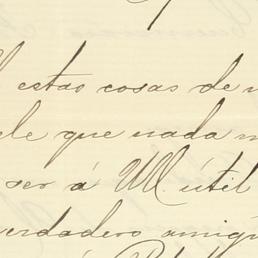 estas cosas de
que nada
ser á Ud. útil
verdadero amig